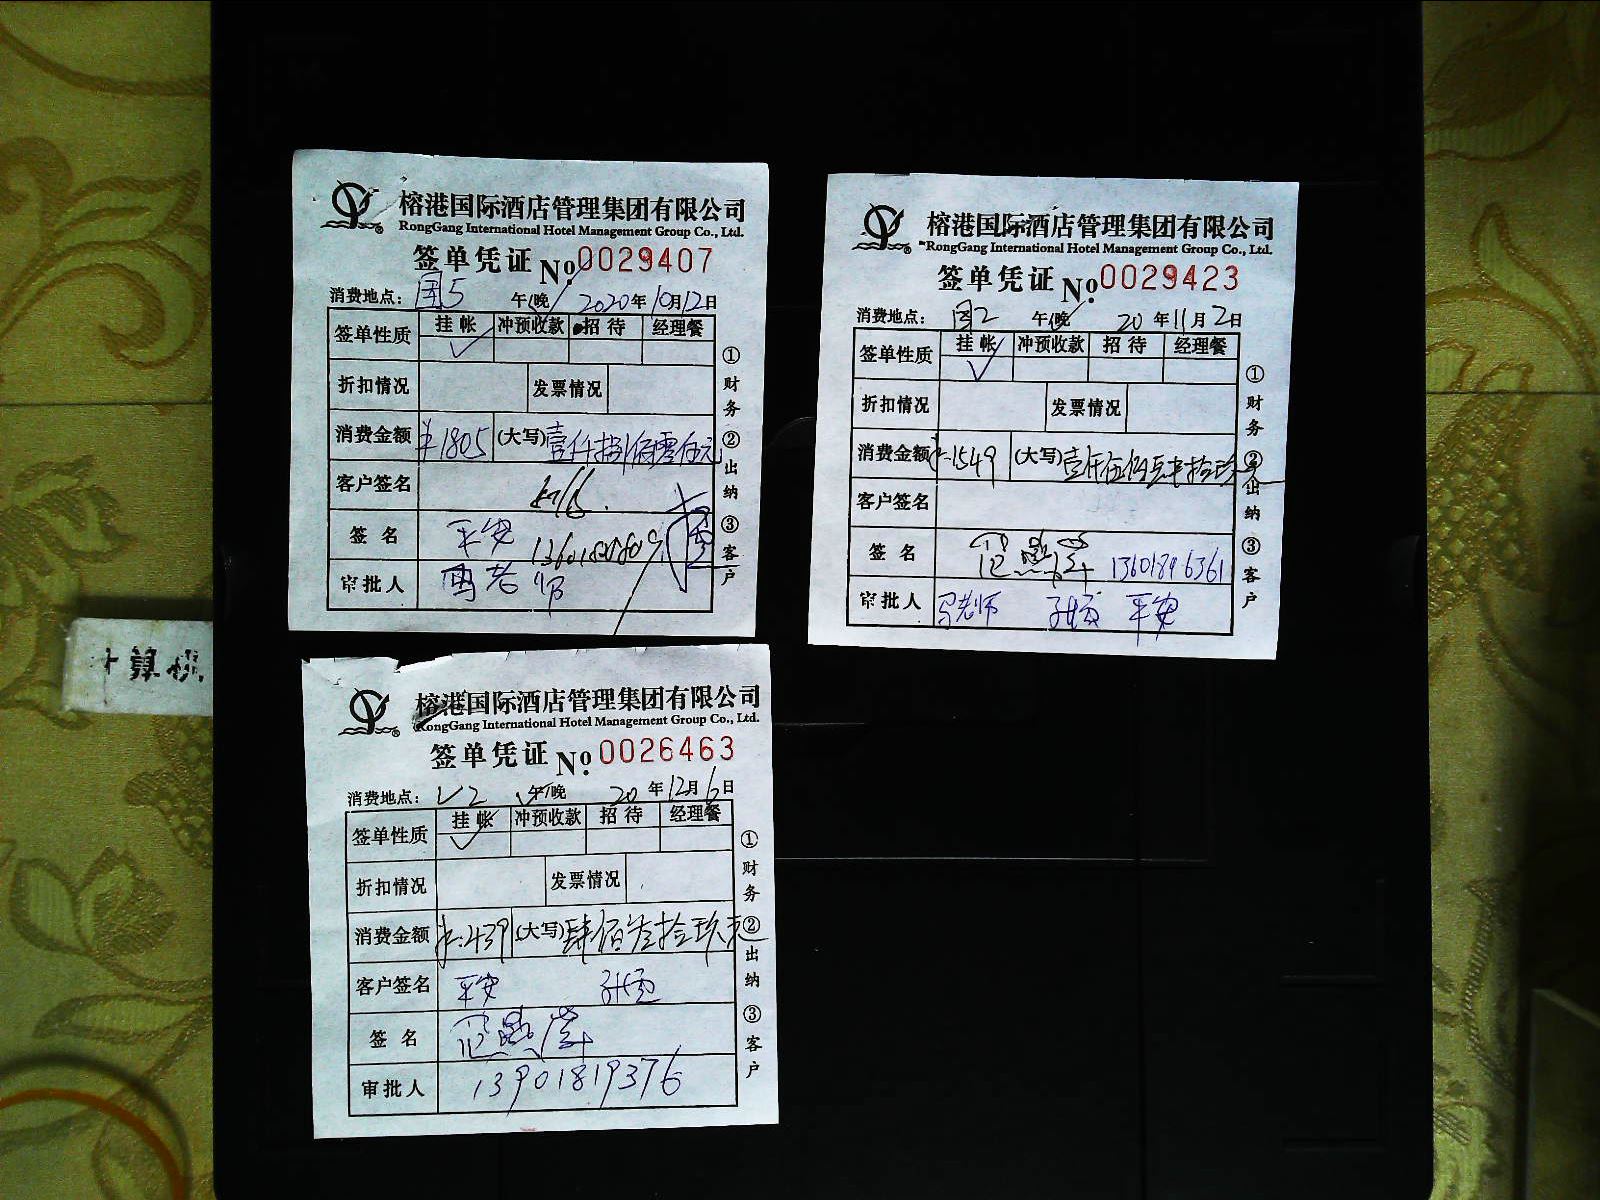 榕港国际酒店管理集团有限公司
RongGang International Hotel Management Group Co., Ltd.
签单凭证 No. 0029407
消费地点: 国5 午/晚 2020年10月12日
签单性质 挂帐 冲预收款 招待 经理餐
折扣情况 发票情况
消费金额 ¥1805 (大写) 壹仟捌佰零伍元
客户签名
签名 平安
审批人 老师
①财务 ②出纳 ③客户
榕港国际酒店管理集团有限公司
RongGang International Hotel Management Group Co., Ltd.
签单凭证 No. 0029423
消费地点: 国2 午/晚 20年11月2日
签单性质 挂帐 冲预收款 招待 经理餐
折扣情况 发票情况
消费金额 ¥1549 (大写) 壹仟伍佰肆拾玖
客户签名
签名 13601896361
审批人 马老师 平安
①财务 ②出纳 ③客户
榕港国际酒店管理集团有限公司
RongGang International Hotel Management Group Co., Ltd.
签单凭证 No. 0026463
消费地点: V2 午/晚 20年12月6日
签单性质 挂帐 冲预收款 招待 经理餐
折扣情况 发票情况
消费金额 ¥439 (大写) 肆佰叁拾玖元
客户签名 平安
签名
审批人 13901819376
①财务 ②出纳 ③客户